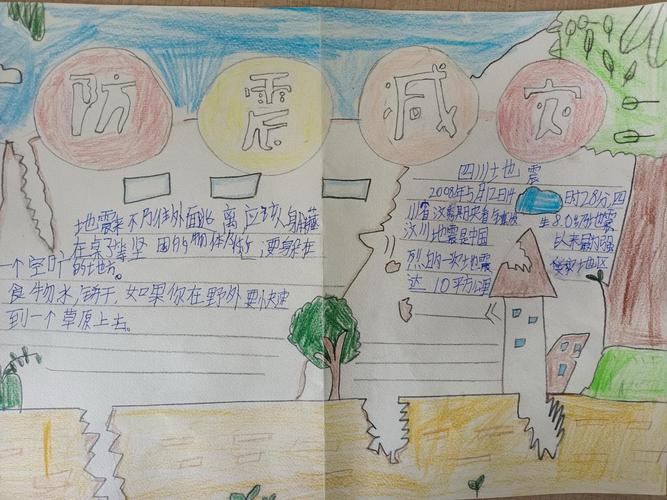 防震减灾
地震来不及往外面跑离应该人身藏
在桌子等坚固的物体 要躲在
一个空旷的地方。
食物水,饼干,如果你在野外要快速
到一个草原上去。
四川土地震
2008年5月12日 时28分四
川省汶 生8.0级地震
汶川地震是中国 以来最 强
烈的一次地震 地区
达10平方公里